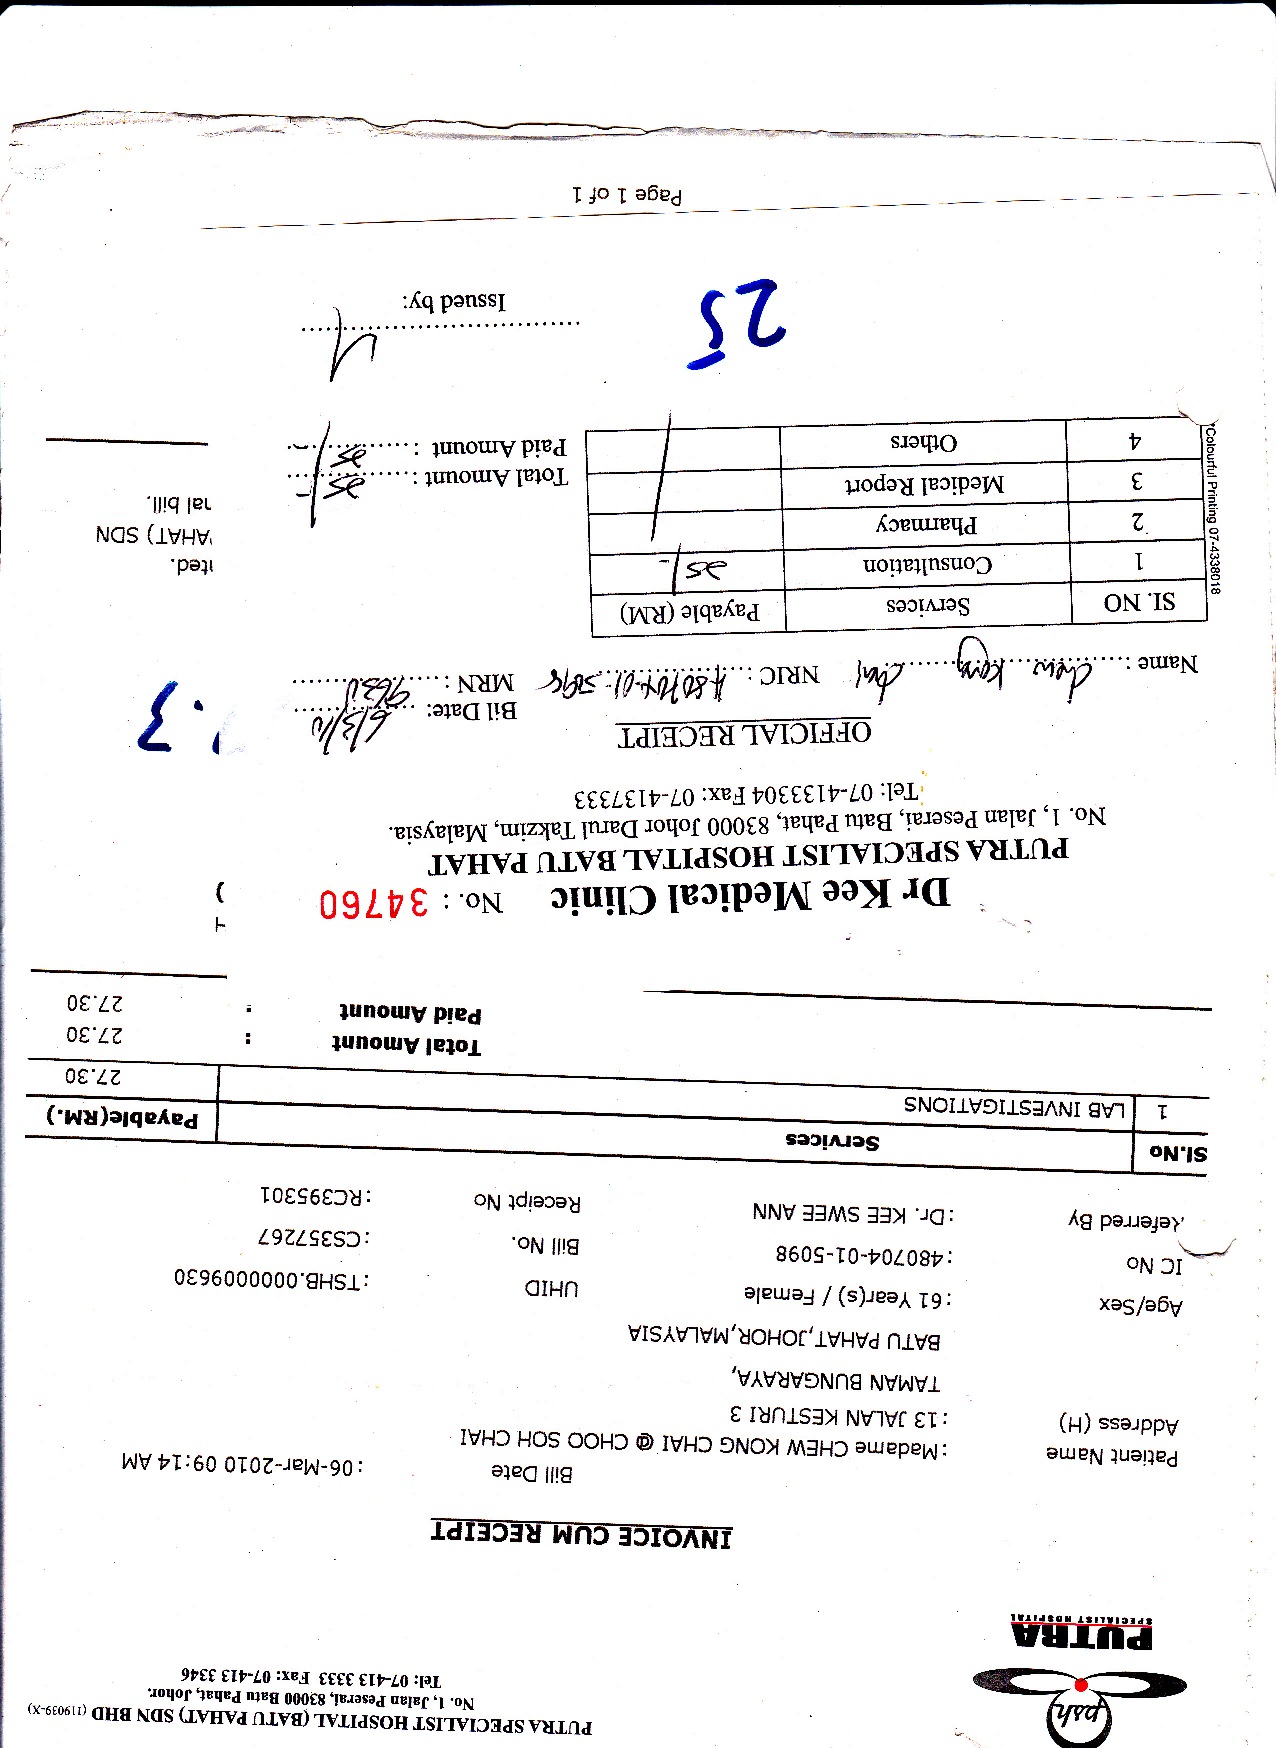 PUTRA SPECIALIST HOSPITAL (BATU PAHAT) SDN BHD (119039-X)
No. 1, Jalan Peserai, 83000 Batu Pahat, Johor.
Tel: 07-413 3333 Fax: 07-413 3346
psh
PUTRA
SPECIALIST HOSPITAL
INVOICE CUM RECEIPT
Patient Name :Madame CHEW KONG CHAI @ CHOO SOH CHAI Bill Date :06-Mar-2010 09:14 AM
Address (H) :13 JALAN KESTURI 3
TAMAN BUNGARAYA,
BATU PAHAT,JOHOR,MALAYSIA
Age/Sex :61 Year(s) / Female UHID :TSHB.0000009630
IC No :480704-01-5098 Bill No. :CS357267
Referred By :Dr. KEE SWEE ANN Receipt No :RC395301
Sl.No Services Payable(RM.)
1 LAB INVESTIGATIONS 27.30
Total Amount : 27.30
Paid Amount : 27.30
Dr Kee Medical Clinic No. : 34760
PUTRA SPECIALIST HOSPITAL BATU PAHAT
No. 1, Jalan Peserai, Batu Pahat, 83000 Johor Darul Takzim, Malaysia.
Tel: 07-4133304 Fax: 07-4137333
OFFICIAL RECEIPT Bil Date: 6/3/10
Name : Chew Kong Chai NRIC : 480704-01-5098 MRN : 9630
SI. NO Services Payable (RM)
1 Consultation 25/-
2 Pharmacy
3 Medical Report
4 Others
Total Amount : 25/-
Paid Amount : 25/-
ited.
AHAT) SDN
nal bill.
25
Issued by:
Colourful Printing 07-4338018
Page 1 of 1